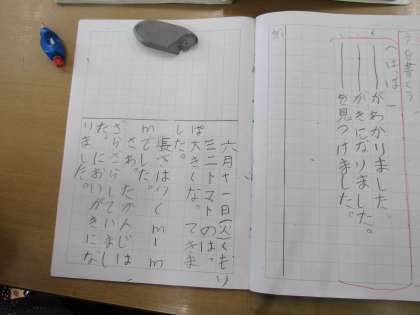 へはっぱ
がわかりました。
がきになりました。
を見つけました。
六月十一日(火)くもり
ミニトマトのは。
は大きくな。てきま
した。
長さは1くm1m
mでした。
さわ。たかんじは
さらさらしていまし
た。においがきにな
りました。